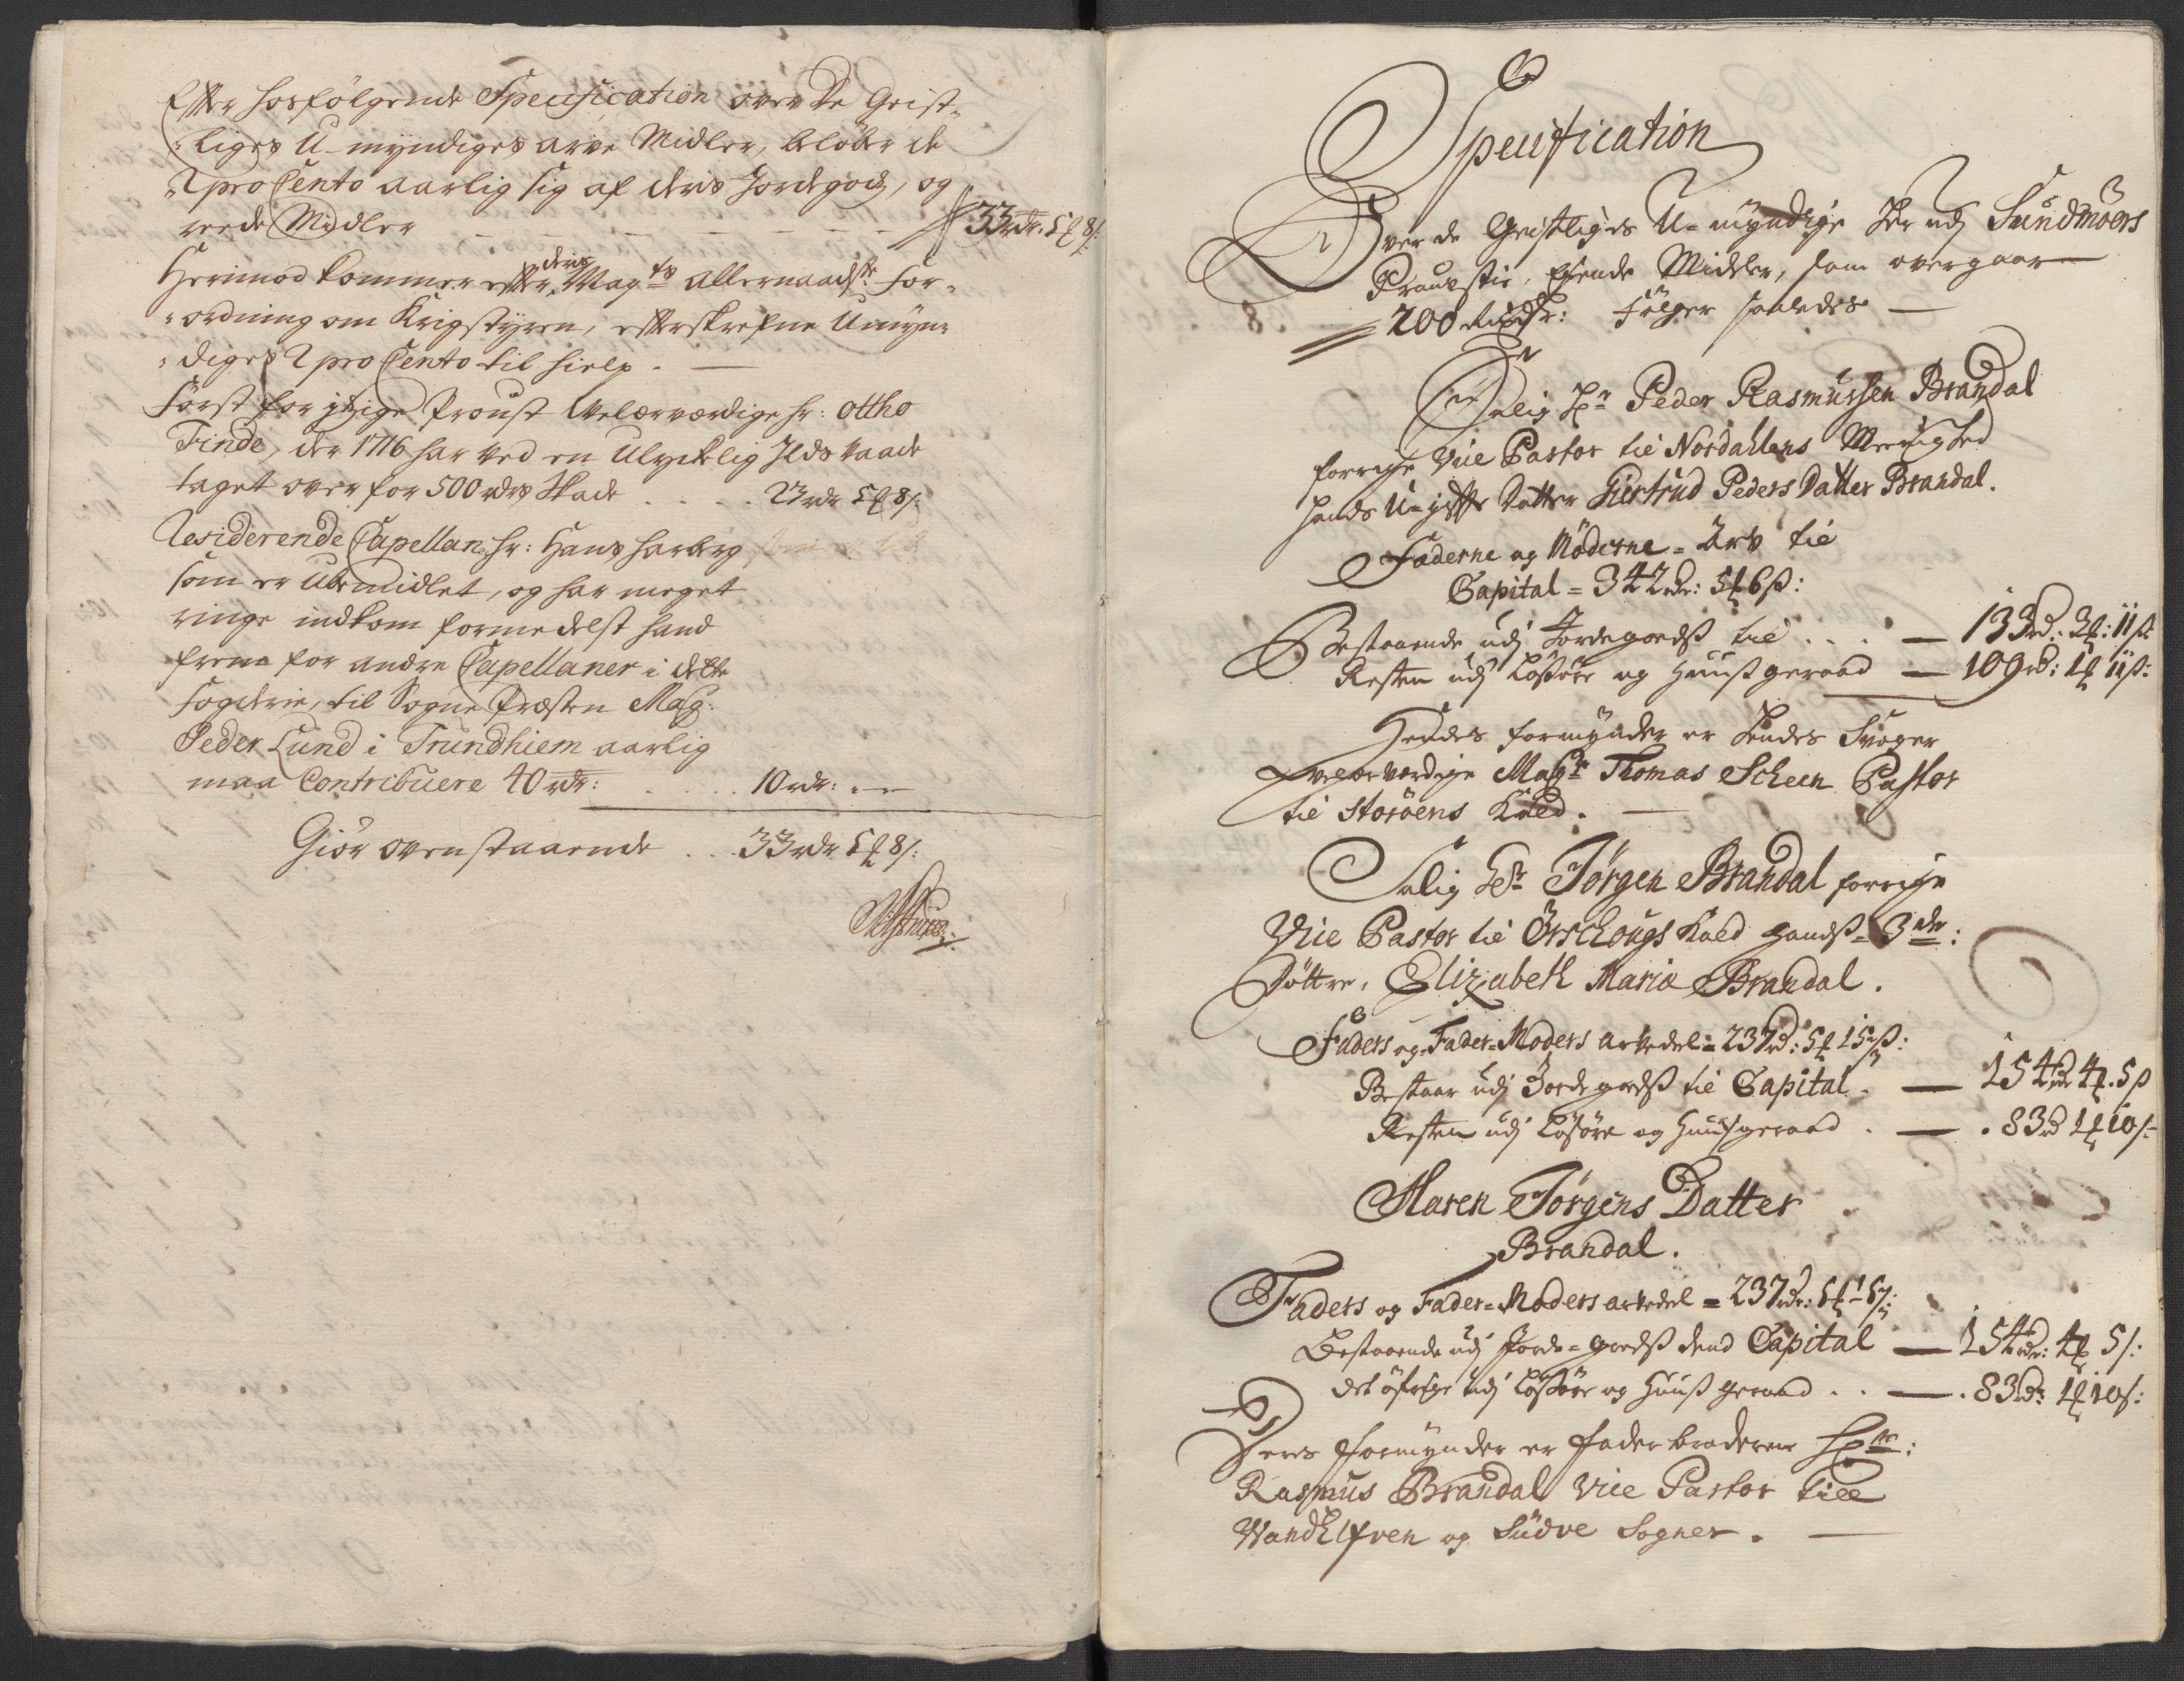 Efter hosfølgende Specification over De Geist-
liges U-myndiges arve Midler, beløber de
2 pro Cento aarlig sig af deris Jordegods, og
reede Midler - - - - - - 33 rdr: 5 ₰ 8 s:
Herimod kommer efter deris Mayts allernaadste For-
ordning om Krigstyren, efterskrefne Umyn-
diges 2 pro Cento til hielp. —
Først for itzige Proust Welærværdige hr: Ottho
Finde, der 1716 har ved en Ulyckelig Ilds vaade
taget over for 500 rdrs skade . . . . 23 rdr 5 ₰ 8 s:
Residerende Capellan hr: Hans harberg
som er Ubemidlet, og har meget
ringe indkom formedelst hand
frem for andre Capellaner i dette
fogderie, til Sogne Præsten Mag:
Peder Lund i Trundhiem aarlig
maa Contribuere 40 rdr: . . . . 10 rdr: - -
Giør ovenstaaende . . 33 rdr 5 ₰ 8 s:
Specification
Over de Geistliges U-myndige Her udj Sundmøers
Proustie, Ejende Midler, som overgaar
200 Rixdr: Følger saaledes —
Salig Hr Peder Rasmussen Brandal
forrige Vice Pastor til Nordahlens Menighed
hands U-gifte Datter Giertrud Peders Datter Brandal.
Fæderne og Møderne-Arv til
Capital = 342 rdr: 5 ₰ 6 ß:
Bestaaende udj Jordegodß til . . . — 133 rd: 3 ₰: 11 ß
Resten udj Løsøre og Huußgeraad — 109 rd: 1 ₰ 11 ß:
Hendes formynder er hendes Svoger
velærværdige Magr Thomas Scheen Pastor
til Storøens Kald. —
Salig Hr Jørgen Brandal forrige
Vice Pastor til Ørschougs Kald Handß 3de:
Døttre, Elizabeth Maria Brandal.
Faders og Fader-Moders arvedel = 237 rd: 5 ₰ 15 ß:
Bestaar udj Jordegodß til Capital . — 154 rdr 4 ₰. 5 ß
Resten udj Løsøre og Huusgeraad . — . 83 rd 1 ₰ 10 s:
Maren Jørgens Datter
Brandal.
Faders og Fader-Moders arvedel = 237 rdr: 5 ₰ 15 s:
Bestaaende udj Jorde-godß dend Capital — 154 rdr: 4 ₰ 5 s:
det øfrige udj Løsøre og Huußgeraad . . — . 83 rdr 1 ₰ 10 s:
Deres formynder er faderbroderen Hr:
Rasmus Brandal Vice Pastor till
Wandelfven og Sudve Sogner. —